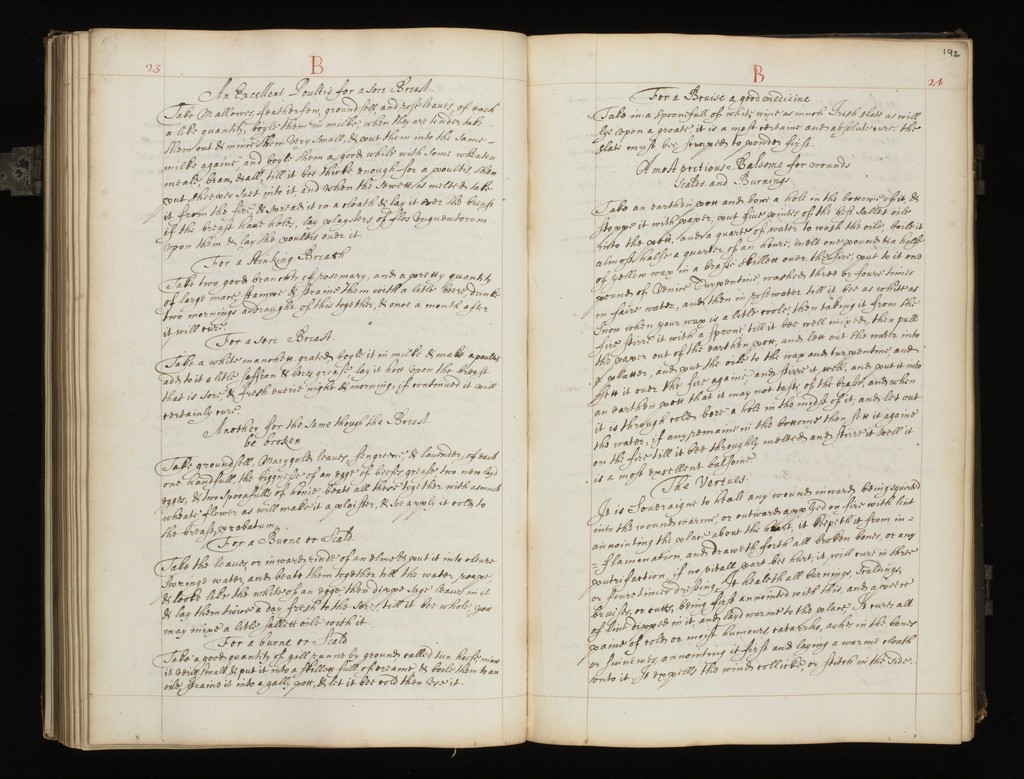 23
B
An Excellent Poultis for a sore Breast.
Take Mallowes, featherfew, groundsell and rose leaves, of each
a like quantity, boyle them in milke, when they are tender take
them out & mince them very small, & put them into the same
milke againe, and boyle them a good while with some wheaten
meale bran, & all, till it bee thicke enough for a poultis, then
put sheepes suet into it, and when the sewett is melted take
it from the fire, & spread it on a cloath & lay it over the breast
if the breast have holes, lay playsters of flos Unguentorum
upon them & lay the poultis over it.
For a stinking Breath
Take two good branches of rosemary, and a pretty quantity
of large mace, stampe & straine them with a litle beere, drinke
two mornings a draught of this together, & once a month after
it will cure.
For a sore Breast.
Take a white manchett grated, boyle it in milke & make a poultis
add to it a litle saffron & bores grease, lay it hott upon the breast
that is sore, & fresh everie night & morning, if continued it will
certainly cure.
Another for the same though the Breast
be broken
Take groundsell, Marygold leaves, singreene, & lavinder, of each
one handfull, the biggnesse of an egge of grease two new layd
egges, & two sponefulls of honie, beate all these together with as much
wheate flower as will make it a plaister, & soe apply it cold to
the breast, probatum.
For a Burne or Scald.
Take the leaves, or inward rinde of an elme & put it into cleare
springe water, and beate them together till the water roape
& looke like the white of an egge then dippe sage leaves in it
& lay them twice a day fresh to the sore, till it bee whole you
may mixe a litle sallett oile with it.
For a burne or Scald
Take a good quantity of gall runne by ground called tun hoofe, mince
it verily small & put it into a skillett full of creame, & boile them to an
oile, straine it into a gally pott, & let it bee cold then use it.
192
B
24
For a Bruise a good medicine
Take in a spoonefull of white wine as much Irish slatt as will
lye upon a groate it is a most certaine and absolute cure: the
slatt must bee scraped to powder first.
A most pretious Balsome for wounds
Scales and Burnings.
Take an earthen pott and bore a hole in the bottome of it, &
stoppe it with paper, put five pintes of the best sallet oile
into the pott, and a quart of water to wash the oile, boile it
almost halfe a quarter of an houre: melt one pound & a halfe
of yellow wax in a brasse skillett over the fire, put to it one
pound of Venice Turpentine washed three or foure times
in faire water, and then in rosewater till it bee as white as
snow when your wax is a litle coole, then taking it from the
fire stirre it with a spoone, till it bee well mixed, then pull
the paper out of the earthen pott, and lett out the water into
a platter, and put the oile to the wax and turpentine, and
sett it over the fire againe, and stirre it well, and put it into
an earthen pott that it may not taste of the brasse, and when
it is through cold, bore a hole in the midst of it, and let out
the water, if any remaine in the bottome then sett it againe
on the fire till it bee throughly melted and stirre it well it
is a most excellent balsome
The Vertues.
It is Soveraigne to heall any wound inward, being squirted
into the wound warme, or outward applyed on fire with lint
annointing the place about the hurt, it keepeth it from in=
=flammation, and draweth forth all broken bones, or any
putrifaction, if no vitall part bee hurt, it will cure in three
or foure times dressing. It healeth all burnings, scaldings,
bruises, or cutts, being first annointed with this, and a peece
of lint dipped in it, and layd warme to the place. It cures all
paine of cold, or moist humours, catarrhs, aches, in the bones
or sinewes, annointing it first and laying a warme cloath
unto it. It expells the wind collicke, or stitch in the side.